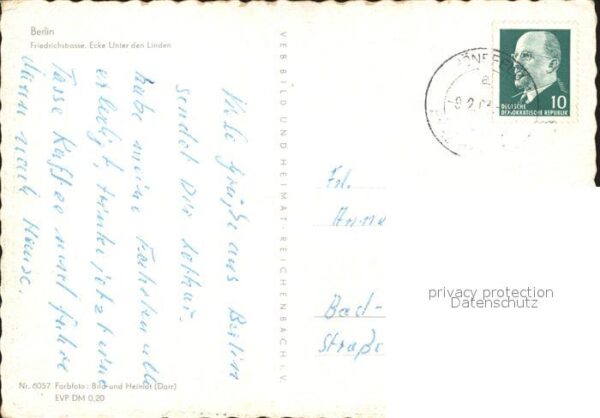 Berlin
Friedrichstrasse, Ecke Unter den Linden
Viele Grüße aus Berlin
sendet Dir Lothar.
habe meine Fahrten alle
erledigt, trinke jetzt eine
Tasse Kaffee und fahre
dann nach Hause.
Nr. 6057 Farbfoto: Bild und Heimat (Darr)
EVP DM 0,20
VEB BILD UND HEIMAT · REICHENBACH I. V.
DEUTSCHE
DEMOKRATISCHE REPUBLIK
10
Frl.
Bad-
Straße
privacy protection
Datenschutz